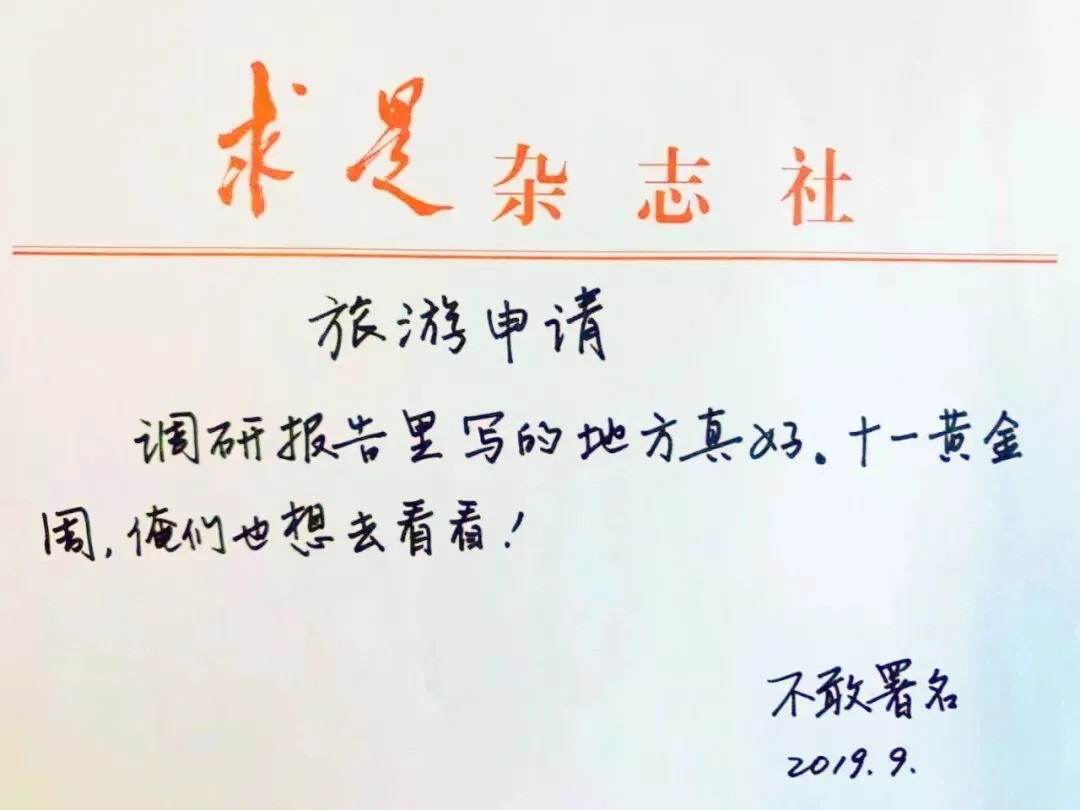 求是杂志社
旅游申请
调研报告里写的地方真好。十一黄金
周，俺们也想去看看！
不敢署名
2019.9.